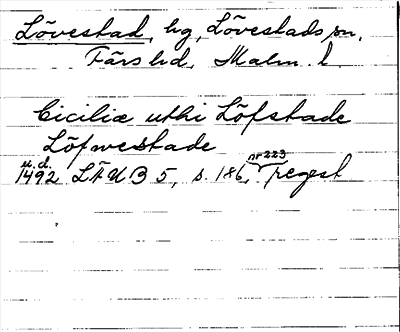 Lövestad, hg, Lövestads sn,
Färs hd, Malm. l.
Cicilie uthi Löfstade
Löfwestade
u.d.
1492 LÄUB 5, s. 186, nr 223 regest